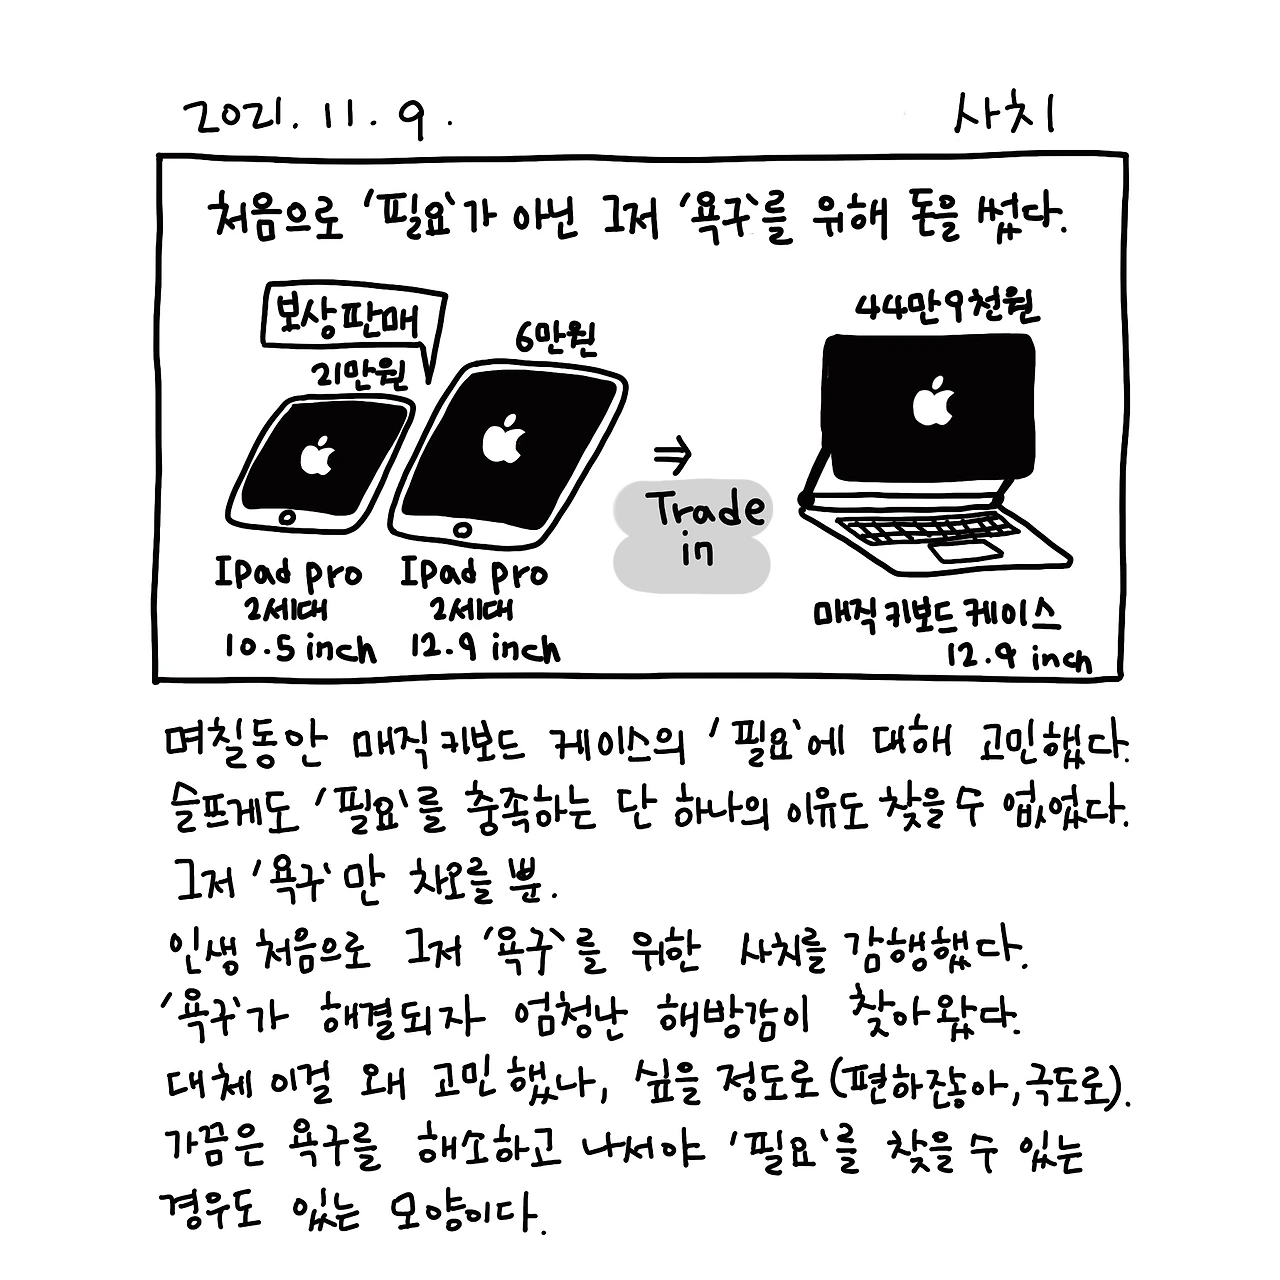 2021. 11. 9.
사치
처음으로 '필요'가 아닌 그저 '욕구'를 위해 돈을 썼다.
보상판매
21만원
6만원
44만9천원
⇒
Trade
in
IPad pro
2세대
10.5 inch
IPad pro
2세대
12.9 inch
매직키보드 케이스
12.9 inch
며칠동안 매직키보드 케이스의 '필요'에 대해 고민했다.
슬프게도 '필요'를 충족하는 단 하나의 이유도 찾을 수 없었다.
그저 '욕구'만 차오를 뿐.
인생 처음으로 그저 '욕구'를 위한 사치를 감행했다.
'욕구'가 해결되자 엄청난 해방감이 찾아왔다.
대체 이걸 왜 고민했나, 싶을 정도로 (편하잖아, 극도로).
가끔은 욕구를 해소하고 나서야 '필요'를 찾을 수 있는
경우도 있는 모양이다.